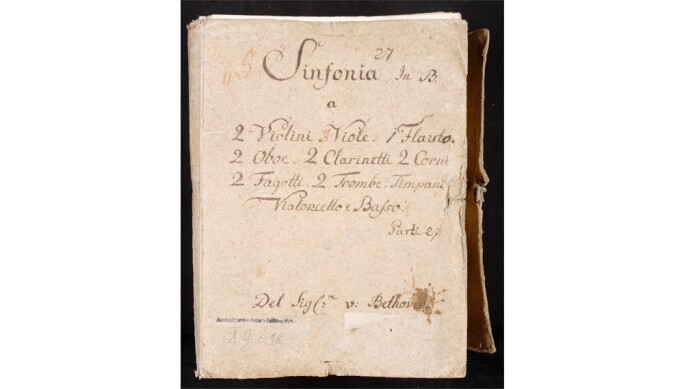 27
Sinfonia In B.
a
2 Violini. 2 Viole. 1 Flauto.
2 Oboe. 2 Clarinetti 2 Corni
2 Fagotti. 2 Trombe. Timpani
Violoncello e Basso.
Parti 27
Del Sigre v: Bethoven